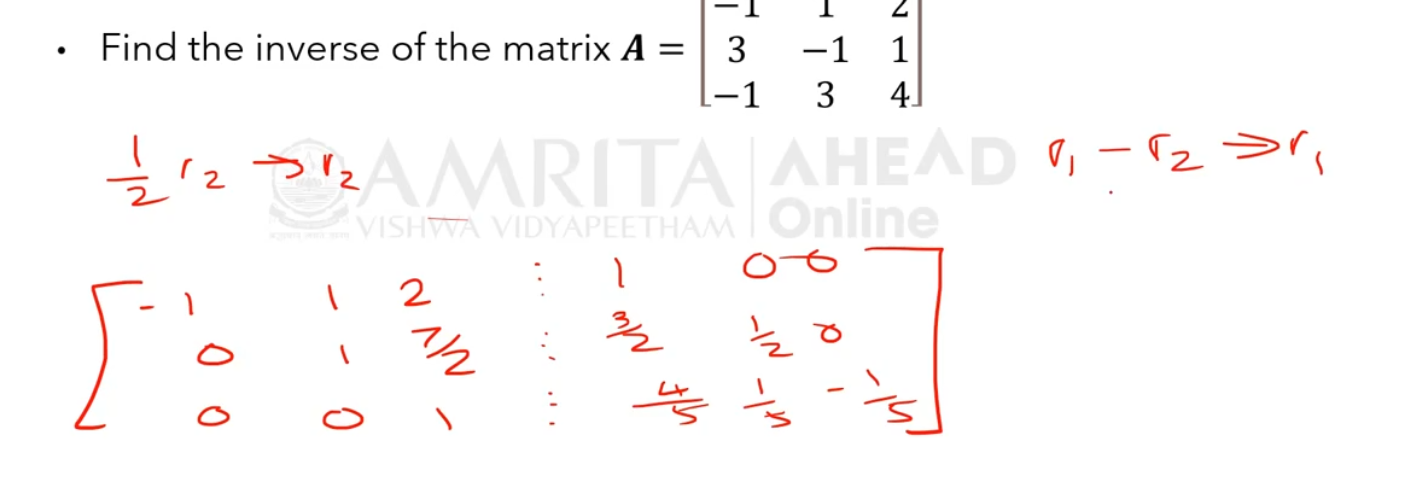 −1 1 2
• Find the inverse of the matrix A = 3 −1 1
−1 3 4
1/2 r2 → r2
r1 − r2 ⇒ r1
AMRITA AHEAD
VISHWA VIDYAPEETHAM Online
-1 1 2 ⋮ 1 0 0
0 1 7/2 ⋮ 3/2 1/2 0
0 0 1 ⋮ 4/5 1/5 -1/5